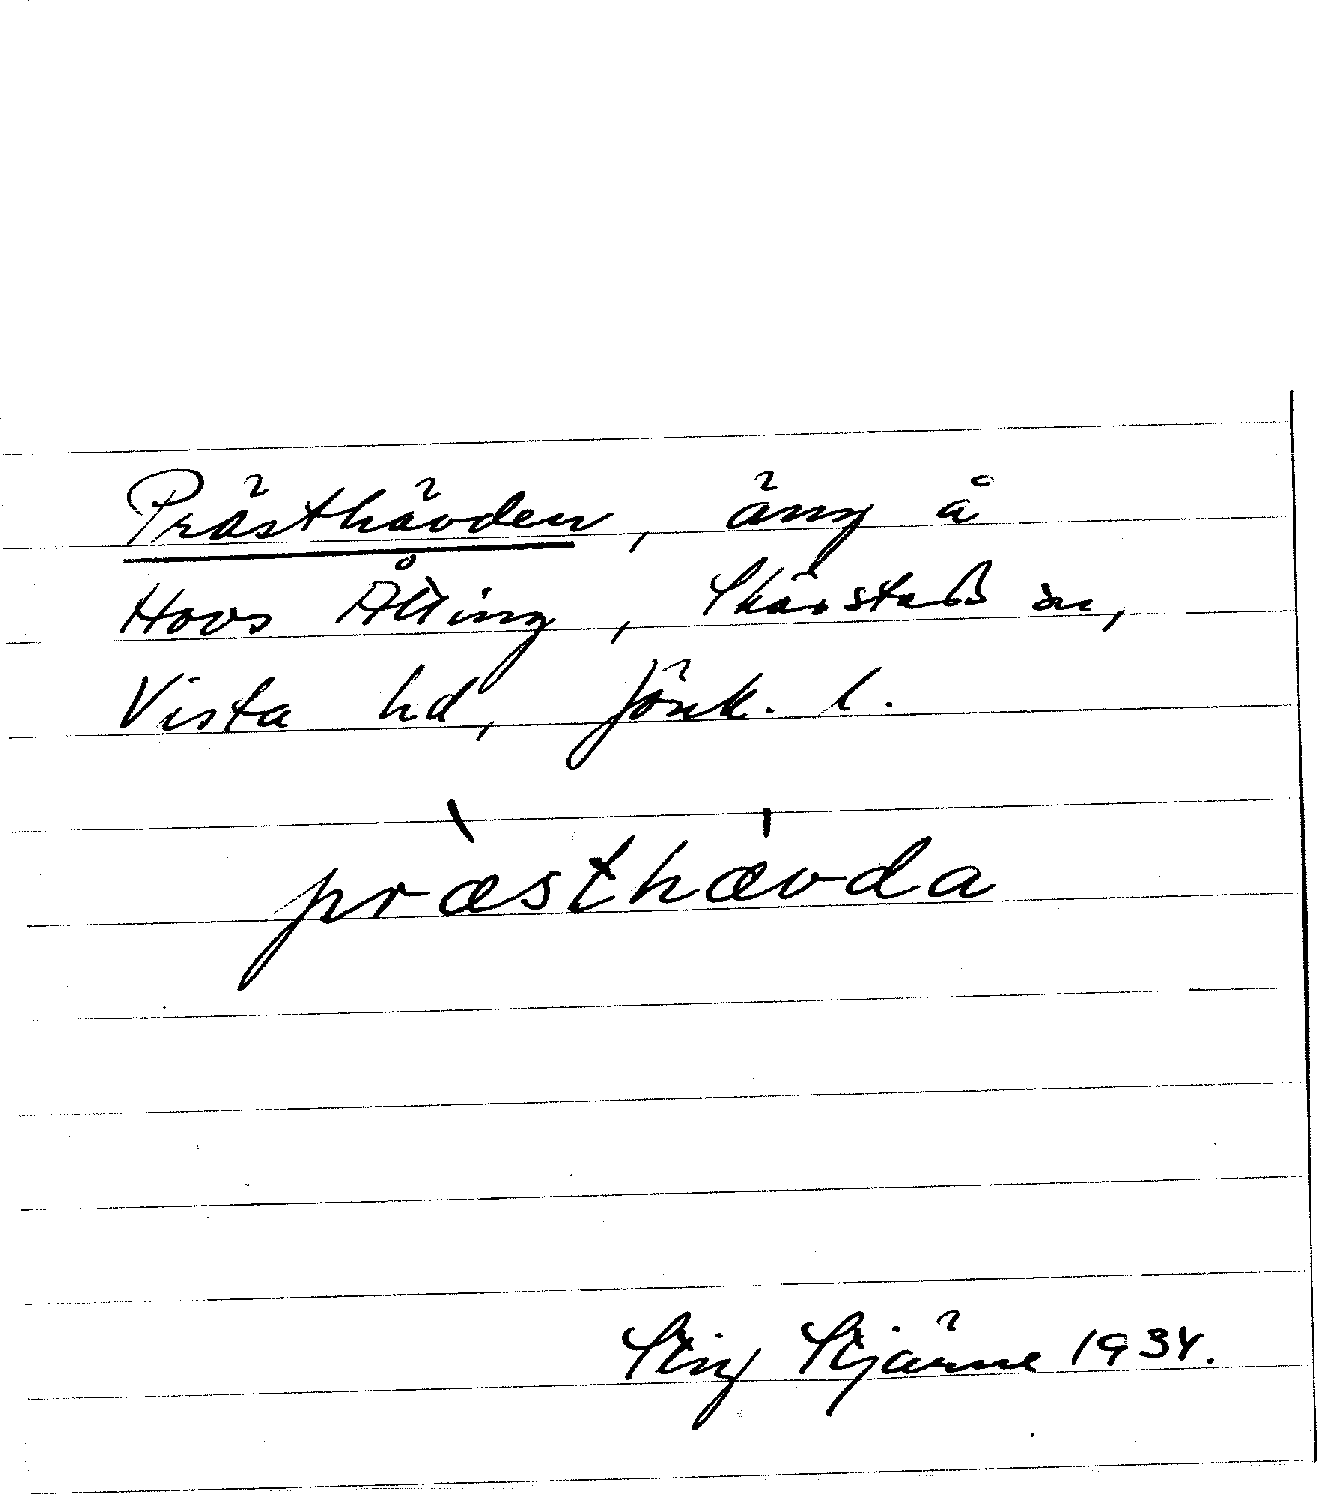 Prästhävden, äng å
Hovs Åtting, Skärstads sn,
Vista hd, Jönk. l.
pr&#x e6;̀sthæ̍vda
Stig Stjärne 1934.